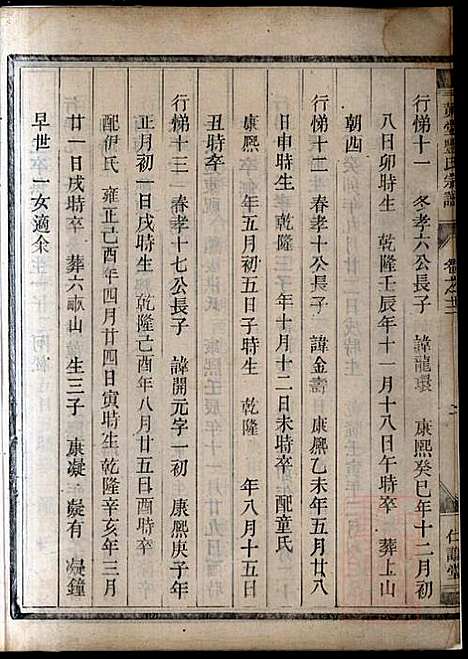 行悌十一　冬孝六公長子　諱龍環　康熙癸巳年十二月初
八日卯時生　乾隆壬辰年十一月十八日午時卒　葬上山
朝酉
行悌十二　春孝十公長子　諱金壽　康熙乙未年五月廿八
日申時生　乾隆三十年十月十二日未時卒　配童氏
康熙　年五月初五日子時生　乾隆　年八月十五日
丑時卒
行悌十三　春孝十七公長子　諱開元字一初　康熙庚子年
正月初一日戌時生　乾隆己酉年八月廿五日戌時卒
配伊氏　雍正己酉年四月廿四日寅時生乾隆辛亥年三月
廿一日戌時卒　葬六畝山　生三子　康凝　凝有　凝鐘
早世一女適余
氏宗譜
卷之
二
仁讓堂